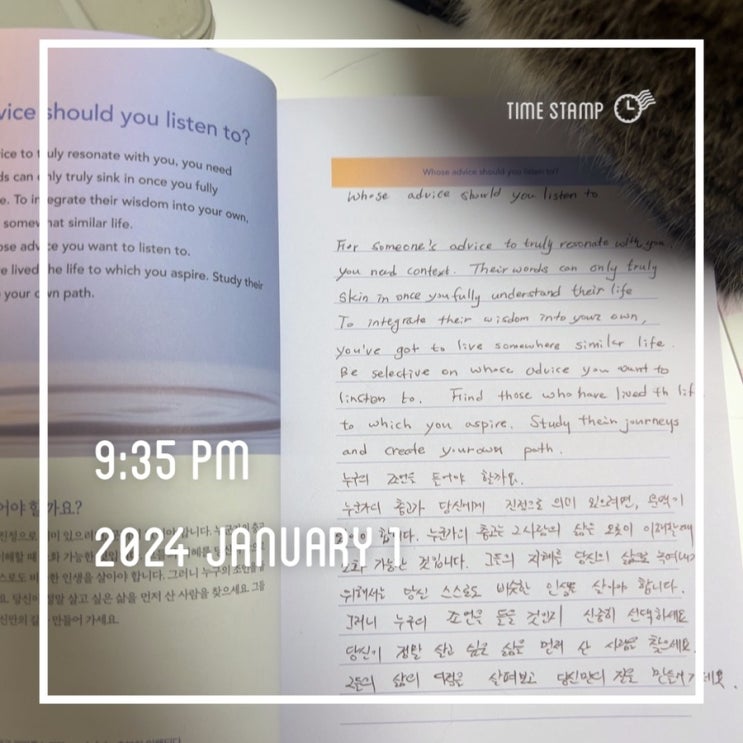 TIME STAMP
vice should you listen to?
ice to truly resonate with you, you need
ds can only truly sink in once you fully
e. To integrate their wisdom into your own,
somewhat similar life.
ose advice you want to listen to.
e lived the life to which you aspire. Study their
your own path.
어야 할까요?
Whose advice should you listen to?
Whose advice should you listen to
For someone's advice to truly resonate with you,
you need context. Their words can only truly
skin in once you fully understand their life
To integrate their wisdom into your own,
you've got to live somewhere similar life.
Be selective on whose advice you want to
linsten to. Find those who have lived th lif
to which you aspire. Study their journeys
and create your own path.
누구의 조언을 들어야 할까요.
누군가의 충고가 당신에게 진정으로 의미 있으려면, 문맥이
합니다. 누군가의 충고는 그사람의 삶을 오롯이 이해할 때
가능한 것입니다. 그들의 지혜를 당신의 삶으로
위해서는 당신 스스로도 비슷한 인생을 살아야 합니다.
그러니 누구의 조언을 들을 것인지 신중히 선택하세요
당신이 정말 살고 싶은 삶을 먼저 산 사람을 찾으세요.
그들의 삶의 여정을 살펴보고 당신만의 길을 만들어가세요.
9:35 PM
2024 JANUARY 1